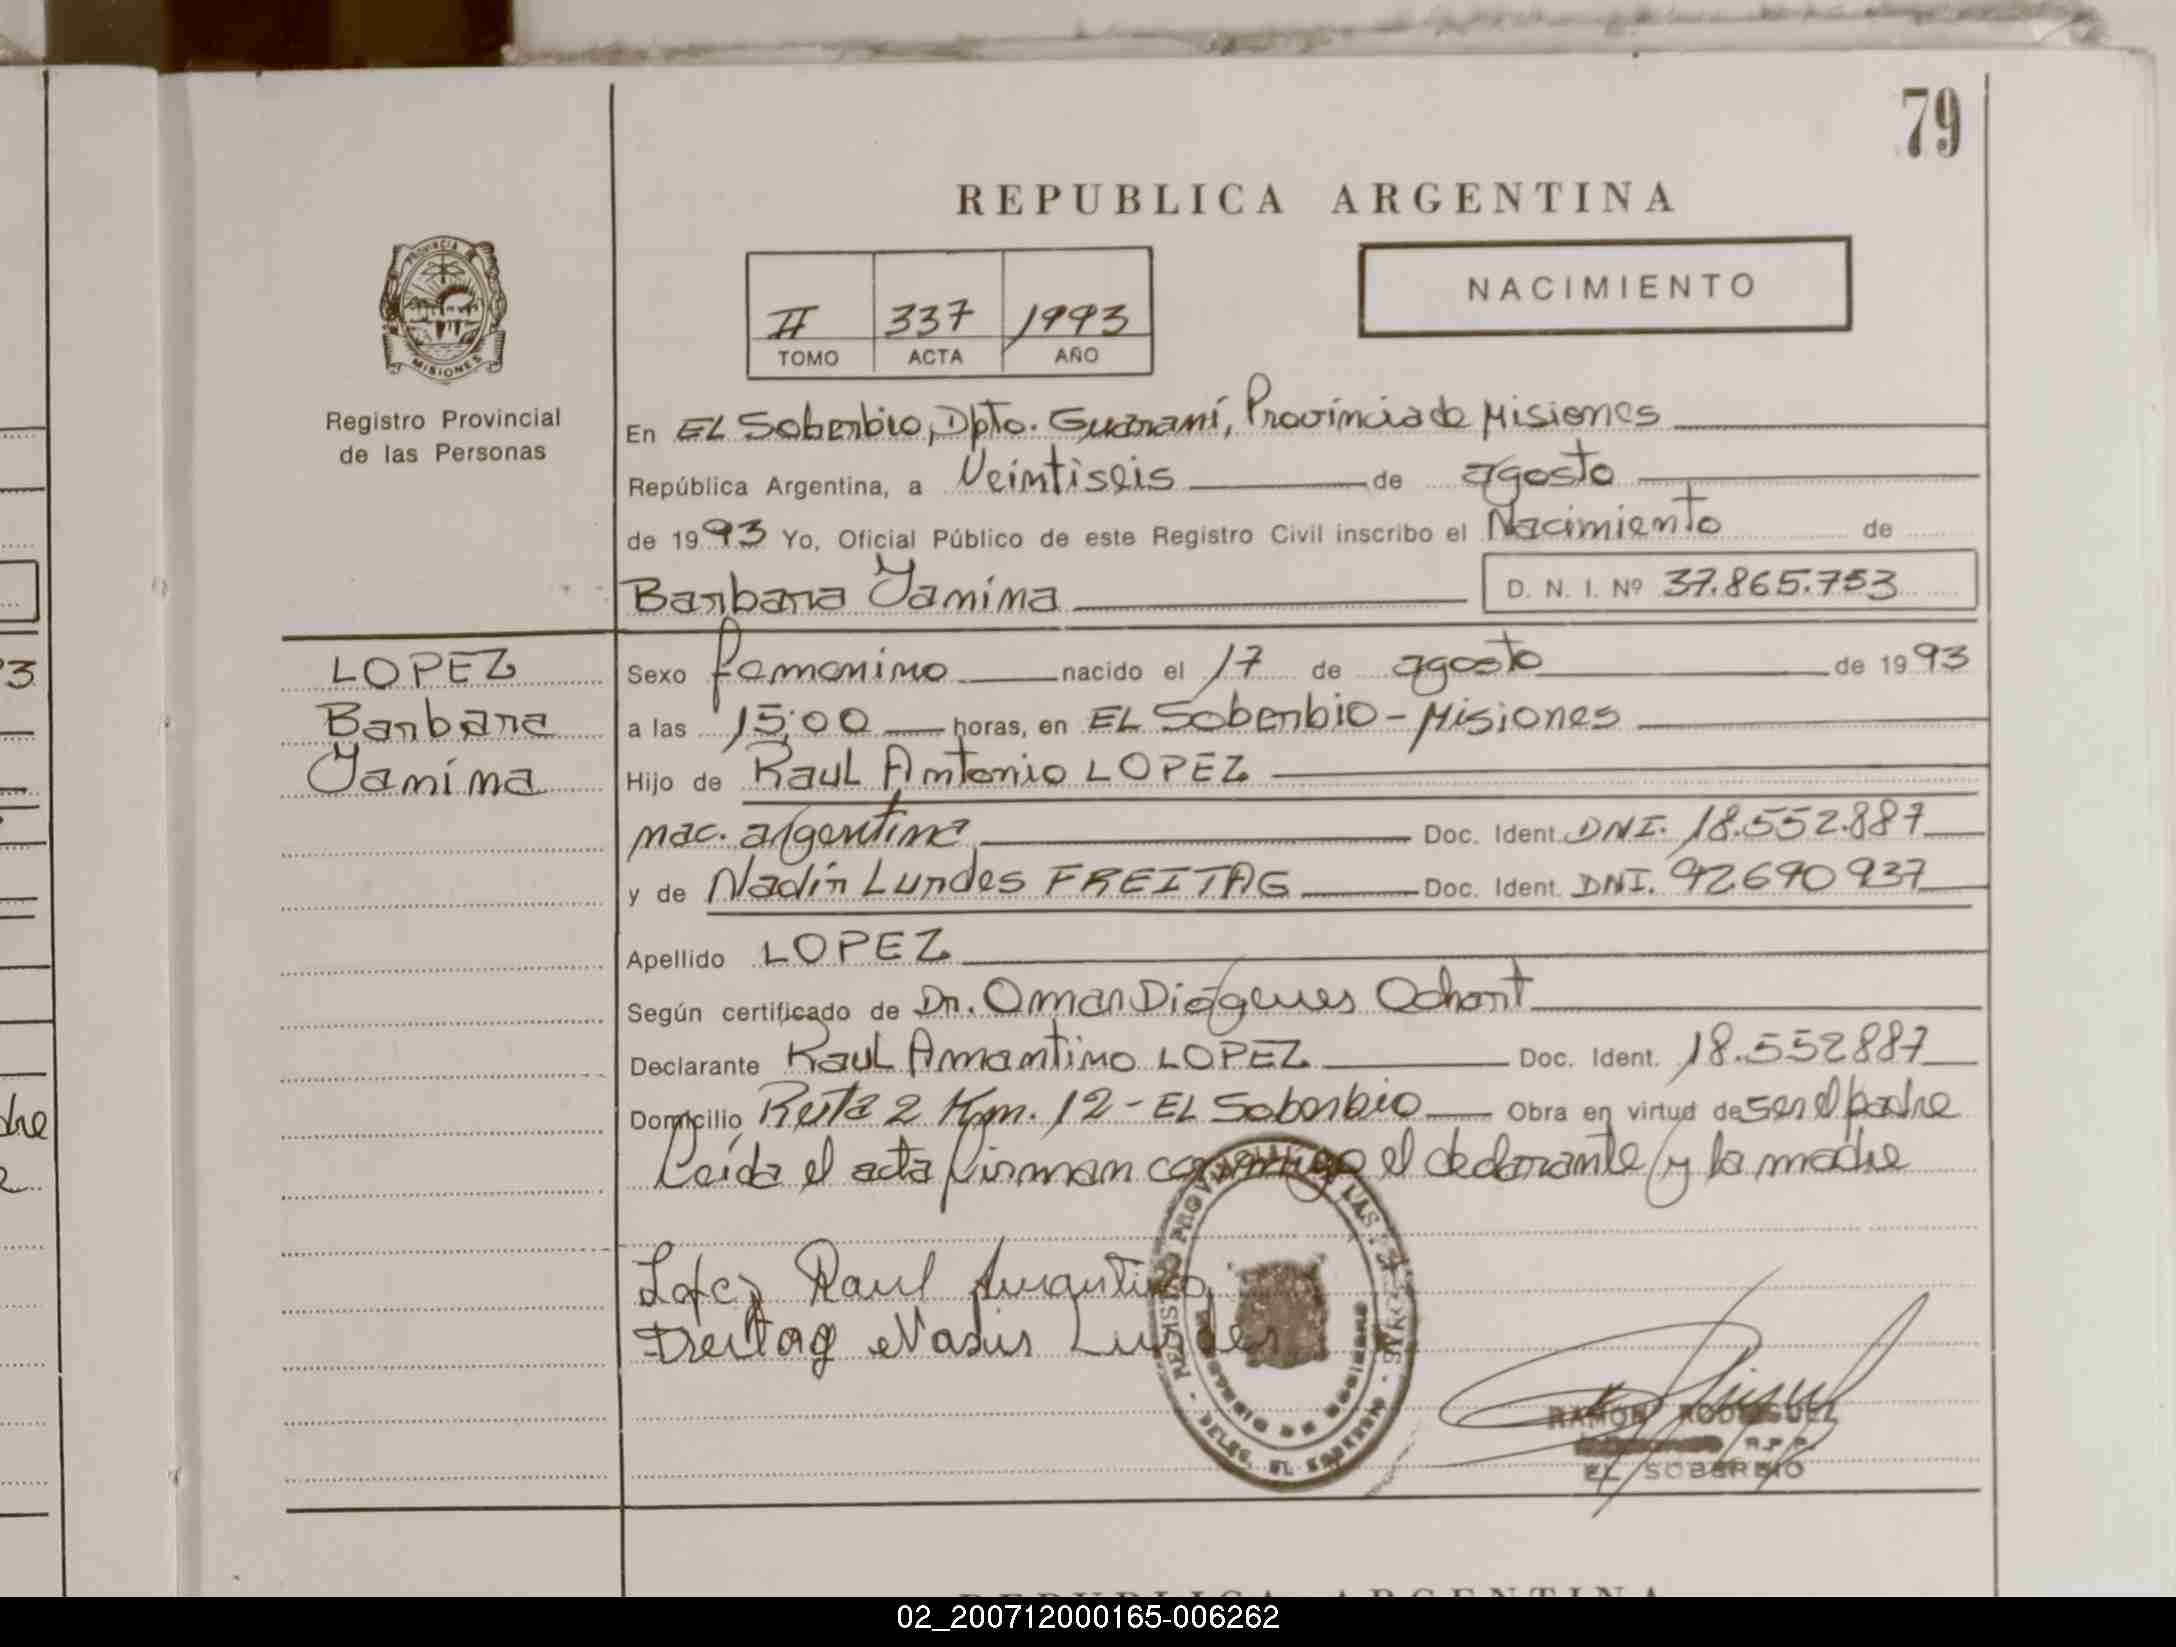 79
REPUBLICA ARGENTINA
PROVINCIA DE
MISIONES
II 337 1993
TOMO ACTA AÑO
NACIMIENTO
Registro Provincial
de las Personas
En EL Soberbio, Dpto. Guaraní, Provincia de Misiones
República Argentina, a Veintiseis de agosto
de 1993 Yo, Oficial Público de este Registro Civil inscribo el Nacimiento de
Barbara Yamina D. N. I. Nº 37.865.753
LOPEZ
Barbara
Yamina
Sexo femenino nacido el 17 de agosto de 1993
a las 15:00 horas, en EL Soberbio - Misiones
Hijo de Raul Antonio LOPEZ
nac. argentina Doc. Ident. DNI. 18.552.887
y de Nadir Lurdes FREITAG Doc. Ident. DNI. 92690937
Apellido LOPEZ
Según certificado de Dr. Omar Diógenes
Declarante Raul Amantino LOPEZ Doc. Ident. 18.552887
Domicilio Ruta 2 Km. 12 - EL Soberbio Obra en virtud de ser el padre
Leída el acta firman conmigo el declarante y la madre
Lopez Raul Amantino
Freitag Nadir Lurdes
REGISTRO PROVINCIAL DE LAS PERSONAS
MINISTERIO DE GOBIERNO
DELEG. EL SOBERBIO
RAMON RODRIGUEZ
R.P.P.
EL SOBERBIO
REPUBLICA ARGENTINA
dre
02_200712000165-006262